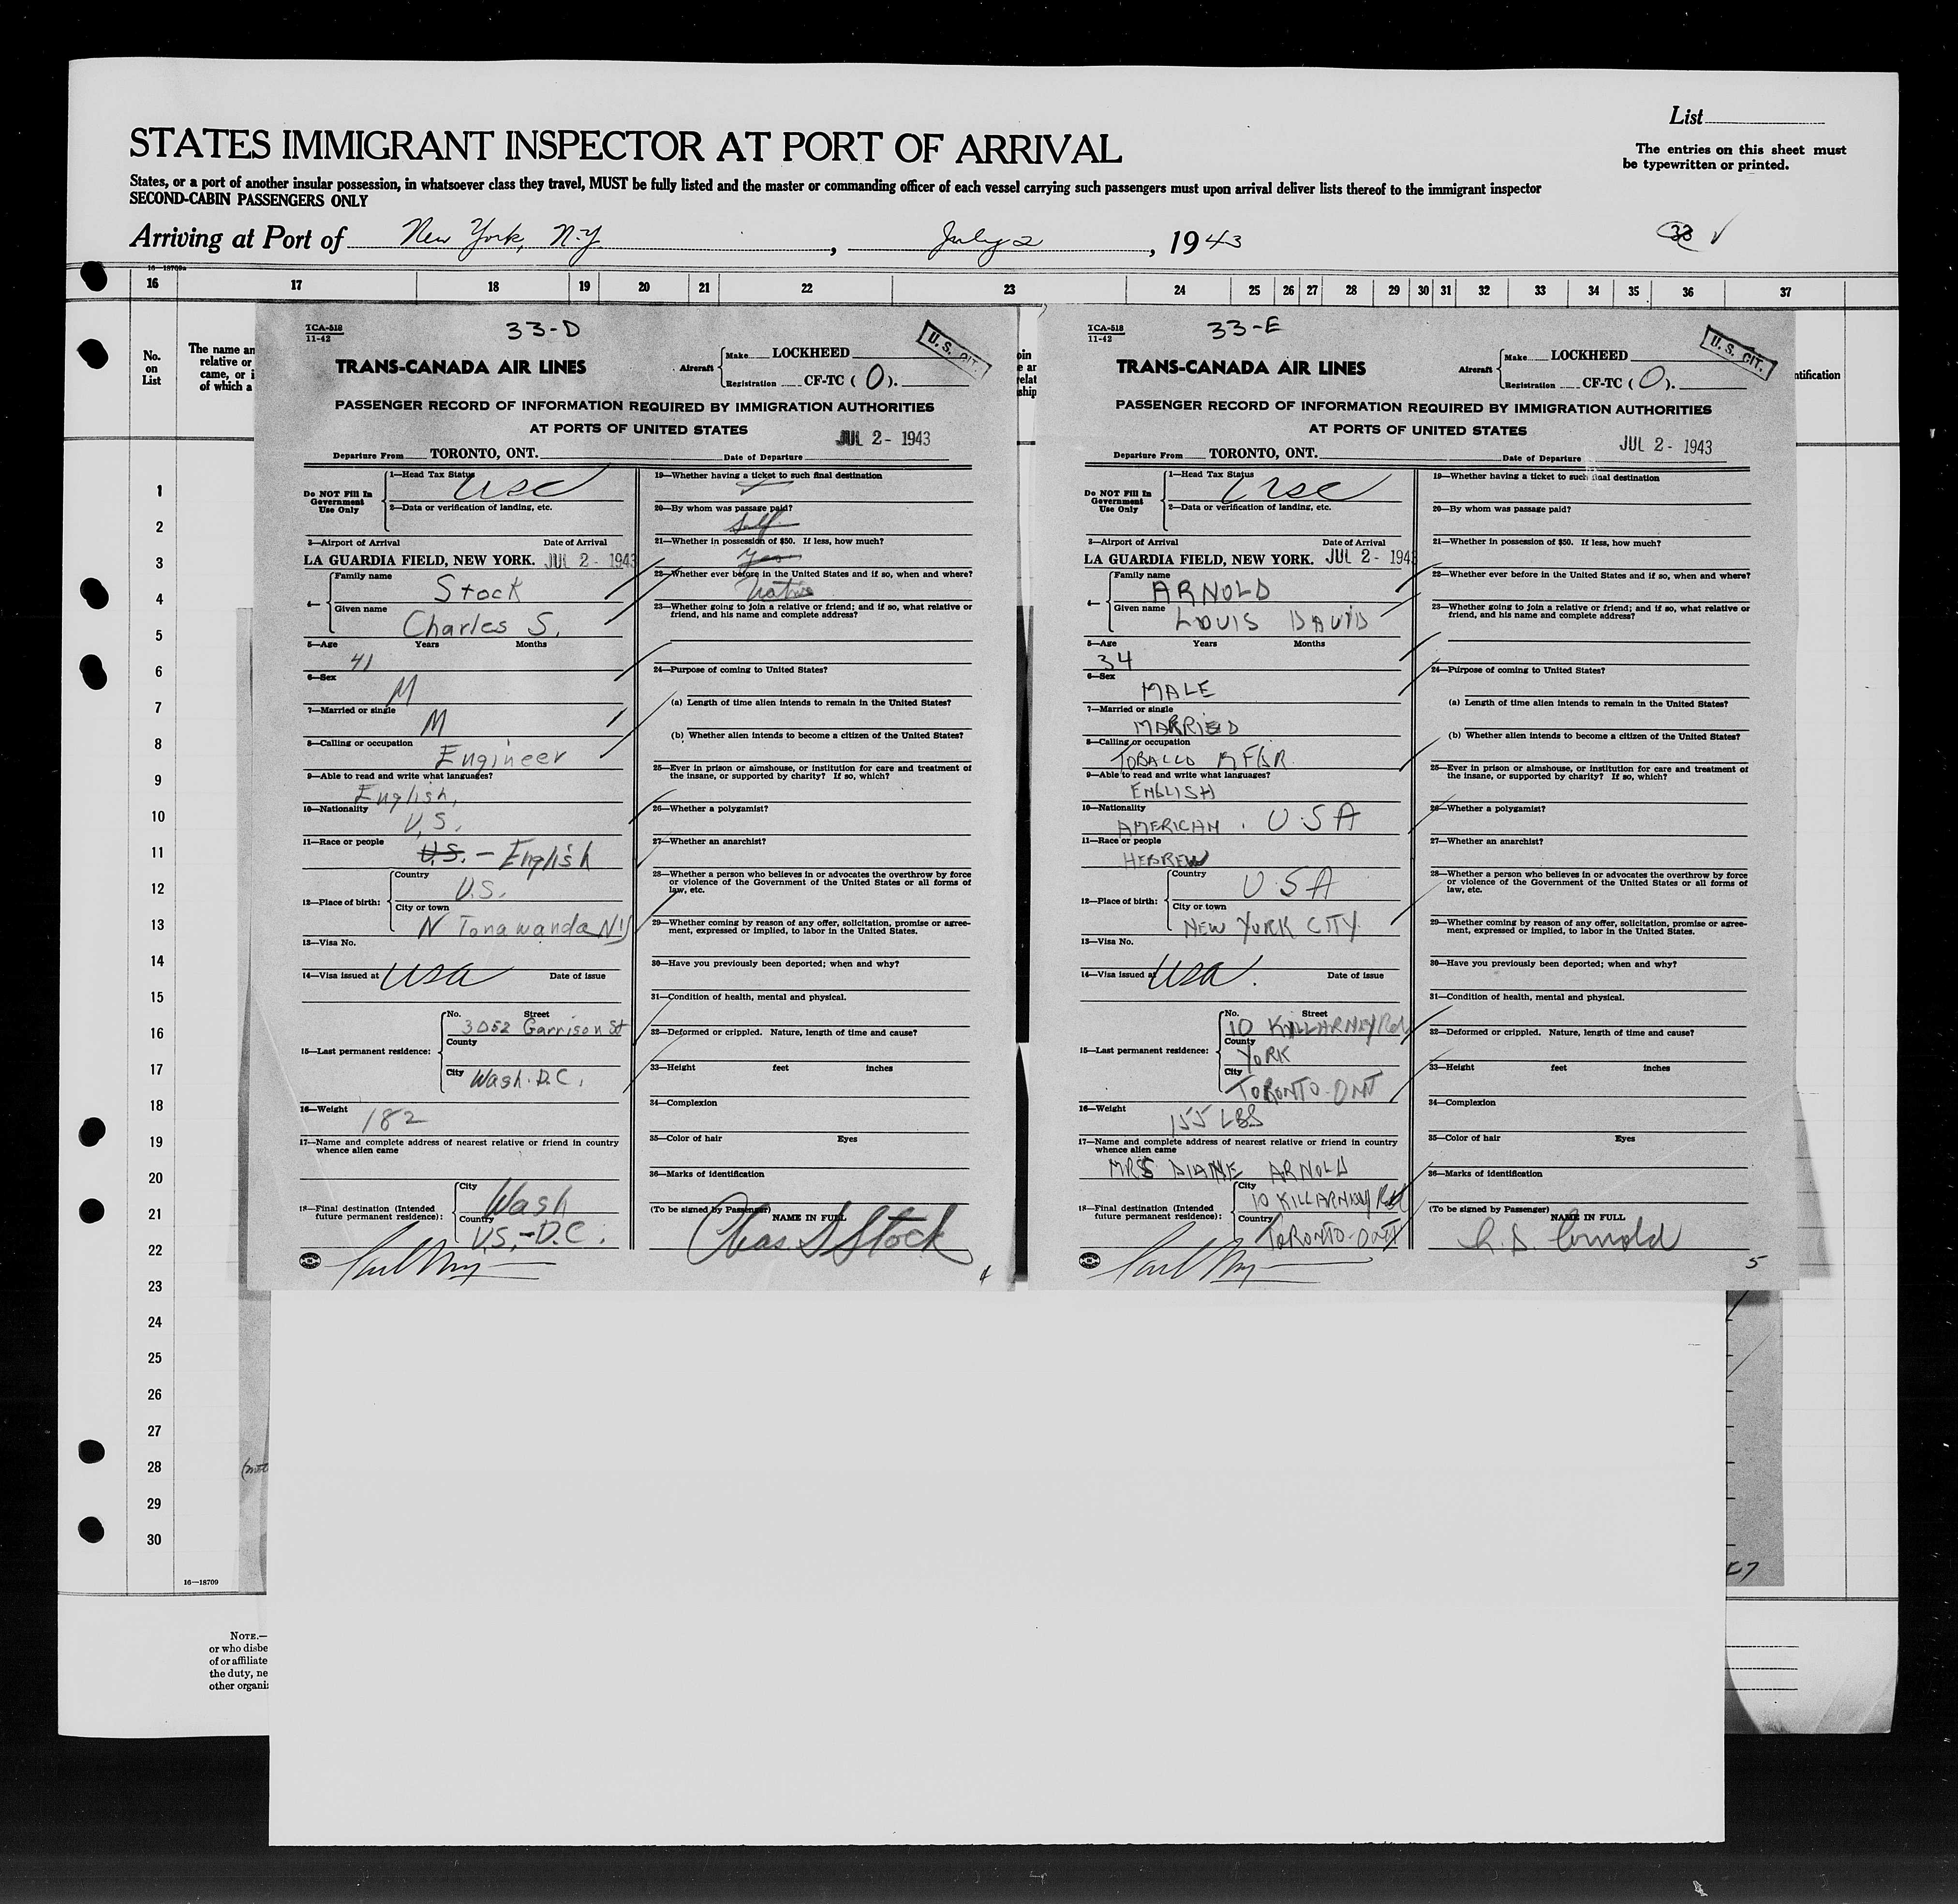 List
The entries on this sheet must
be typewritten or printed.
STATES IMMIGRANT INSPECTOR AT PORT OF ARRIVAL
States, or a port of another insular possession, in whatsoever class they travel, MUST be fully listed and the master or commanding officer of each vessel carrying such passengers must upon arrival deliver lists thereof to the immigrant inspector
SECOND-CABIN PASSENGERS ONLY
Arriving at Port of New York, N.Y. , July 2 , 1943
33 ✓
16—18709a
16 17 18 19 20 21 22 23 24 25 26 27 28 29 30 31 32 33 34 35 36 37
No.
on
List
The name an
relative or
came, or i
of which a
ntification
1
2
3
4
5
6
7
8
9
10
11
12
13
14
15
16
17
18
19
20
21
22
23
24
25
26
27
28
29
30
16—18709
NOTE.—
or who disbe
of or affiliate
the duty, ne
other organi
TCA-518
11-42
33-D
U.S. CIT.
TRANS-CANADA AIR LINES
Aircraft
Make LOCKHEED
Registration CF-TC ( O ).
PASSENGER RECORD OF INFORMATION REQUIRED BY IMMIGRATION AUTHORITIES
AT PORTS OF UNITED STATES
JUL 2 - 1943
Departure From TORONTO, ONT. Date of Departure
Do NOT Fill In
Government
Use Only
1—Head Tax Status
USC
2—Data or verification of landing, etc.
3—Airport of Arrival Date of Arrival
LA GUARDIA FIELD, NEW YORK. JUL 2 - 1943
4—
Family name
Stock
Given name
Charles S.
5—Age Years Months
41
6—Sex
M
7—Married or single
M
8—Calling or occupation
Engineer
9—Able to read and write what languages?
English,
10—Nationality
U.S.
11—Race or people
U.S. — English
12—Place of birth:
Country
U.S.
City or town
N Tonawanda NY
13—Visa No.
14—Visa issued at USA Date of issue
15—Last permanent residence:
No. Street
3052 Garrison St
County
City Wash. D.C.
16—Weight
182
17—Name and complete address of nearest relative or friend in country
whence alien came
18—Final destination (Intended
future permanent residence):
City
Wash
Country
U.S.-D.C.
19—Whether having a ticket to such final destination
20—By whom was passage paid?
Self
21—Whether in possession of $50. If less, how much?
Yes
22—Whether ever before in the United States and if so, when and where?
Native
23—Whether going to join a relative or friend; and if so, what relative or
friend, and his name and complete address?
24—Purpose of coming to United States?
(a) Length of time alien intends to remain in the United States?
(b) Whether alien intends to become a citizen of the United States?
25—Ever in prison or almshouse, or institution for care and treatment of
the insane, or supported by charity? If so, which?
26—Whether a polygamist?
27—Whether an anarchist?
28—Whether a person who believes in or advocates the overthrow by force
or violence of the Government of the United States or all forms of
law, etc.
29—Whether coming by reason of any offer, solicitation, promise or agree-
ment, expressed or implied, to labor in the United States.
30—Have you previously been deported; when and why?
31—Condition of health, mental and physical.
32—Deformed or crippled. Nature, length of time and cause?
33—Height feet inches
34—Complexion
35—Color of hair Eyes
36—Marks of identification
(To be signed by Passenger) NAME IN FULL
Chas S Stock
4
TCA-518
11-42
33-E
U.S. CIT.
TRANS-CANADA AIR LINES
Aircraft
Make LOCKHEED
Registration CF-TC ( O ).
PASSENGER RECORD OF INFORMATION REQUIRED BY IMMIGRATION AUTHORITIES
AT PORTS OF UNITED STATES
JUL 2 - 1943
Departure From TORONTO, ONT. Date of Departure
Do NOT Fill In
Government
Use Only
1—Head Tax Status
USC
2—Data or verification of landing, etc.
3—Airport of Arrival Date of Arrival
LA GUARDIA FIELD, NEW YORK. JUL 2 - 1943
4—
Family name
ARNOLD
Given name
LOUIS DAVID
5—Age Years Months
34
6—Sex
MALE
7—Married or single
MARRIED
8—Calling or occupation
TOBACCO MFGR.
9—Able to read and write what languages?
ENGLISH
10—Nationality
AMERICAN . USA
11—Race or people
HEBREW
12—Place of birth:
Country
USA
City or town
NEW YORK CITY.
13—Visa No.
14—Visa issued at USA. Date of issue
15—Last permanent residence:
No. Street
10 KILLARNEY Rd
County
YORK
City
TORONTO-ONT
16—Weight
155 LBS
17—Name and complete address of nearest relative or friend in country
whence alien came
MRS DIANE ARNOLD
18—Final destination (Intended
future permanent residence):
City
10 KILLARNEY Rd
Country
TORONTO-ONT
19—Whether having a ticket to such final destination
20—By whom was passage paid?
21—Whether in possession of $50. If less, how much?
22—Whether ever before in the United States and if so, when and where?
23—Whether going to join a relative or friend; and if so, what relative or
friend, and his name and complete address?
24—Purpose of coming to United States?
(a) Length of time alien intends to remain in the United States?
(b) Whether alien intends to become a citizen of the United States?
25—Ever in prison or almshouse, or institution for care and treatment of
the insane, or supported by charity? If so, which?
26—Whether a polygamist?
27—Whether an anarchist?
28—Whether a person who believes in or advocates the overthrow by force
or violence of the Government of the United States or all forms of
law, etc.
29—Whether coming by reason of any offer, solicitation, promise or agree-
ment, expressed or implied, to labor in the United States.
30—Have you previously been deported; when and why?
31—Condition of health, mental and physical.
32—Deformed or crippled. Nature, length of time and cause?
33—Height feet inches
34—Complexion
35—Color of hair Eyes
36—Marks of identification
(To be signed by Passenger) NAME IN FULL
L. D. Arnold
5